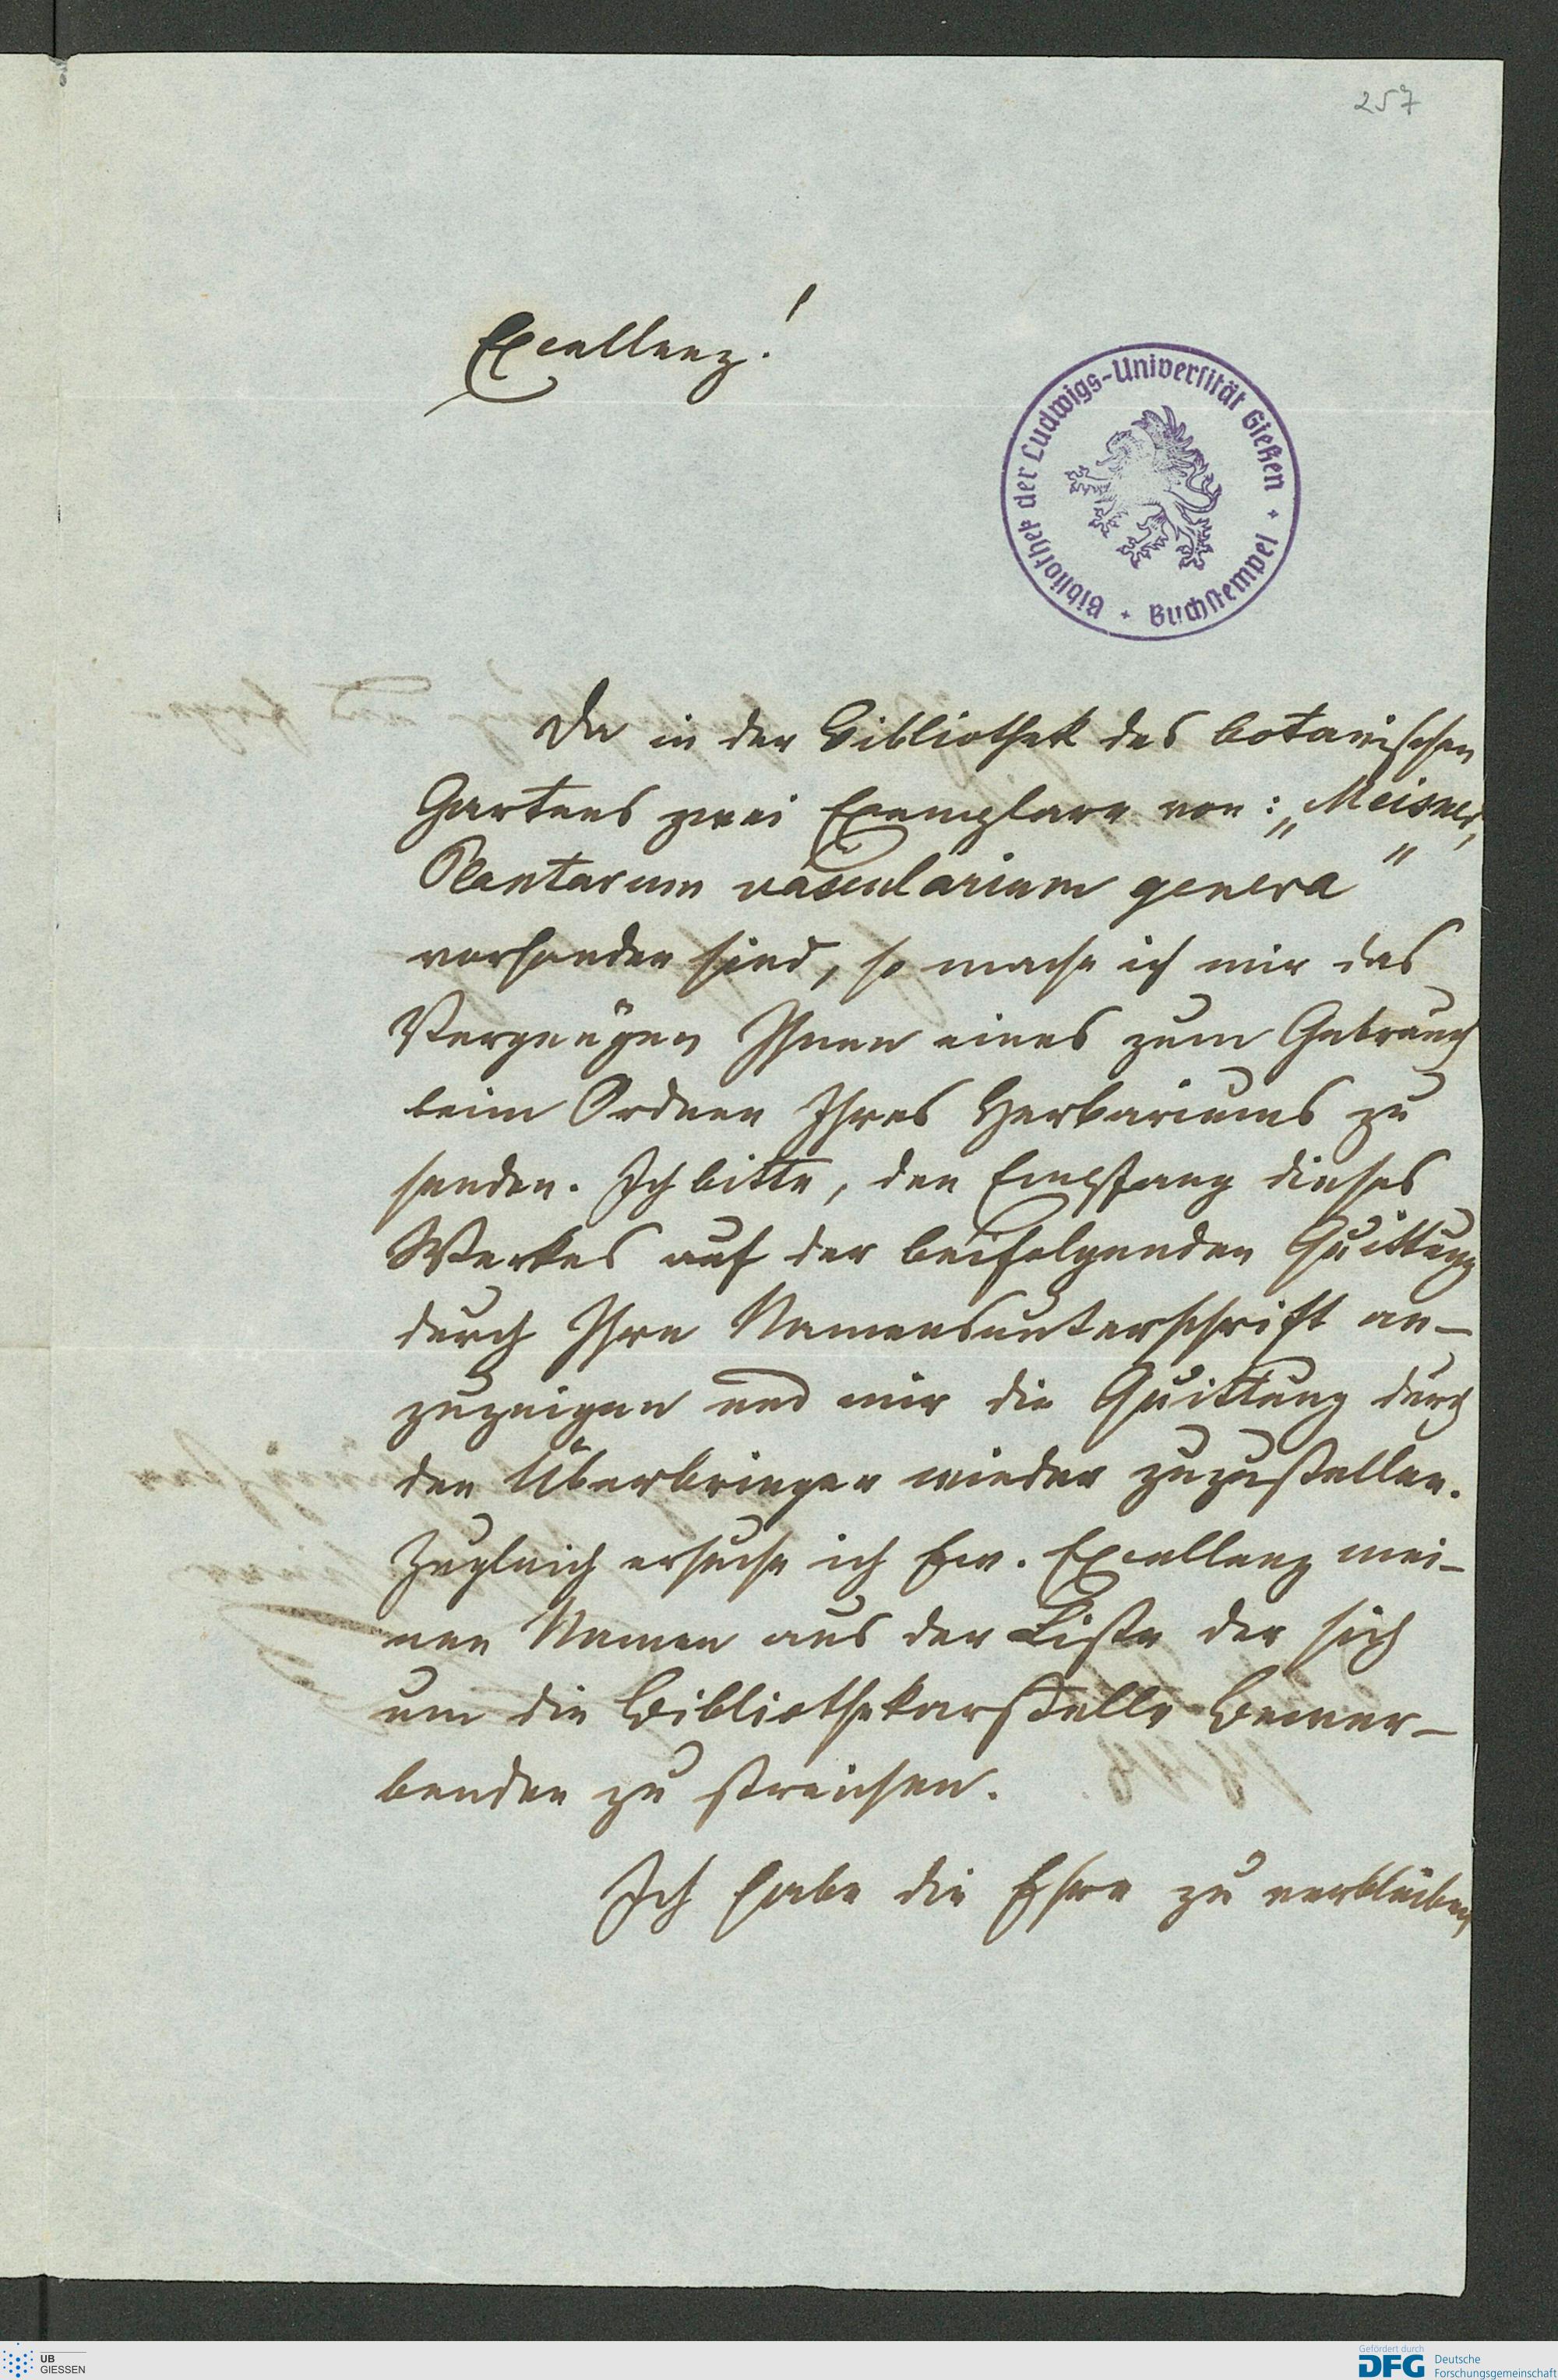 257
Excellenz!
Bibliothek der Ludwigs-Universität Gießen + Buchstempel +
Da in der Bibliothek des botanischen
Gartens zwei Exemplare von: „Meisner,
Plantarum vascularium genera“
vorhanden sind, so mache ich mir das
Vergnügen Ihnen eines zum Gebrauch
beim Ordnen Ihres Herbariums zu
senden. Ich bitte, den Empfang dieses
Werkes auf der beifolgenden Quittung
durch Ihre Namensunterschrift an-
zuzeigen und mir die Quittung durch
den Überbringer wieder zuzustellen.
Zugleich ersuche ich Ew. Excellenz mei-
nen Namen aus der Liste der sich
um die Bibliothekarstelle Bewer-
benden zu streichen.
Ich habe die Ehre zu verbleiben
UB
GIESSEN
Gefördert durch
DFG Deutsche
Forschungsgemeinschaft